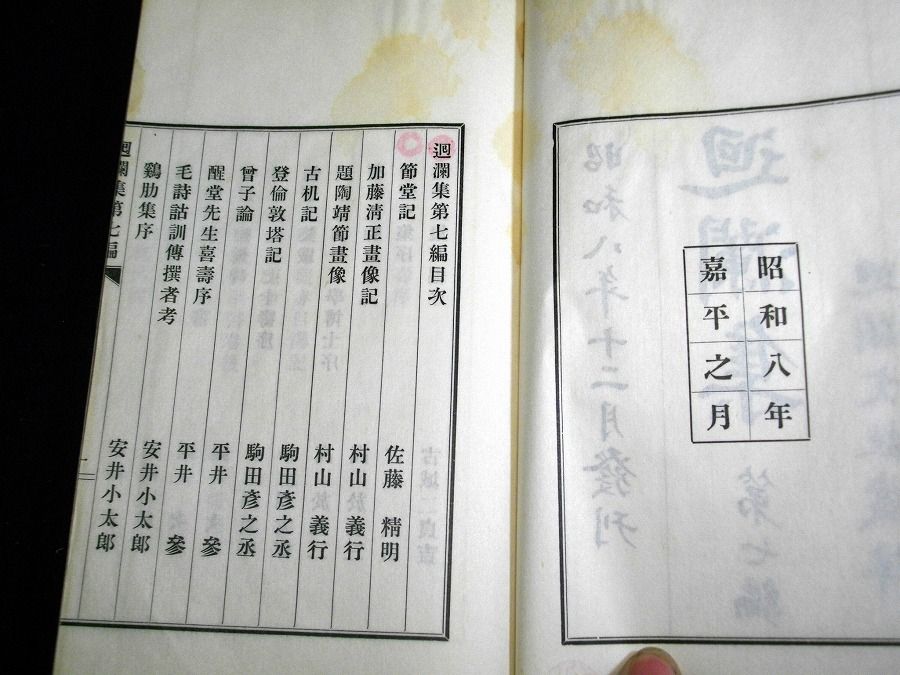 昭和八年
嘉平之月
迴瀾集第七編目次
節堂記 佐藤精明
加藤清正畫像記 村山義行
題陶靖節畫像 村山義行
古机記 駒田彦之丞
登倫敦塔記 駒田彦之丞
曾子論 平井參
醒堂先生喜壽序 平井參
毛詩詁訓傳撰者考 安井小太郎
鷄肋集序 安井小太郎
迴瀾集第七編
昭和八年十二月發刊
迴瀾集 第七編